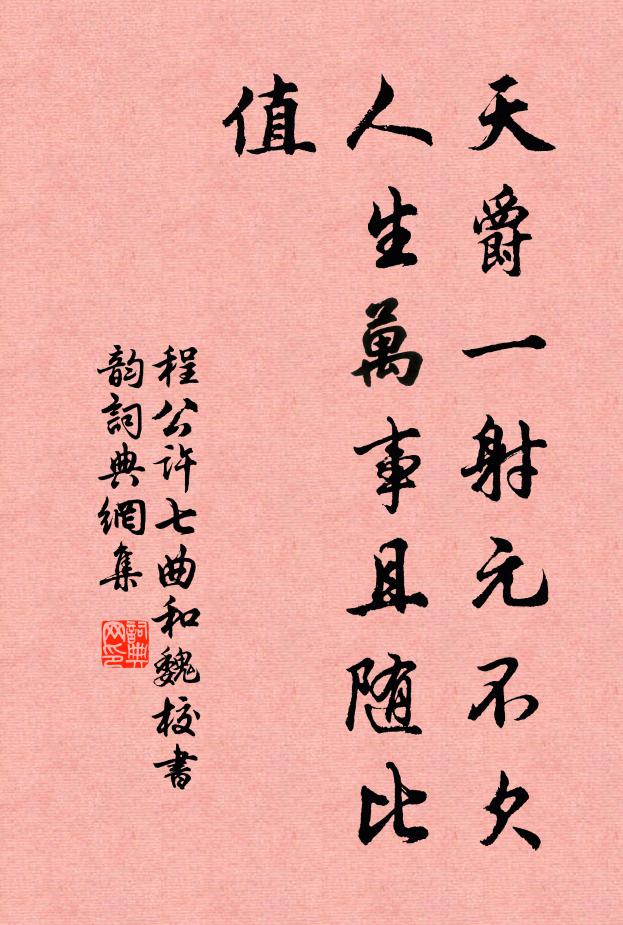 天爵一射元不欠
人生萬事且随比
值
程公许七曲和魏校書
韵詞典網集
詞典网印